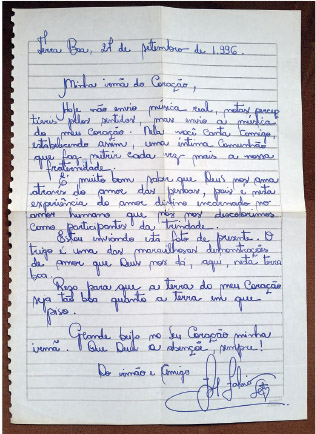 Terra Boa, 21 de setembro de 1.996.
Minha irmã do Coração,
Hoje não envio música real, notas percep
tíveis pelos sentidos, mas envio a música
do meu Coração. Nela você canta comigo,
estabelecendo assim, uma íntima comunhão
que faz nutrir cada vez mais a nossa
fraternidade.
É muito bom saber que Deus nos ama
através do amor das pessoas, pois é nesta
experiência do amor divino encarnado no
amor humano que nós nos descobrimos
como participantes da trindade.
Estou enviando esta foto de presente. O
trigo é uma das maravilhosas demonstrações
de amor que Deus nos dá, aqui, nesta terra
boa.
Rezo para que a terra do meu Coração
seja tão boa quanto a terra em que
piso.
Grande beijo no seu Coração minha
irmã. Que Deus a abençõe, sempre!
Do irmão e amigo